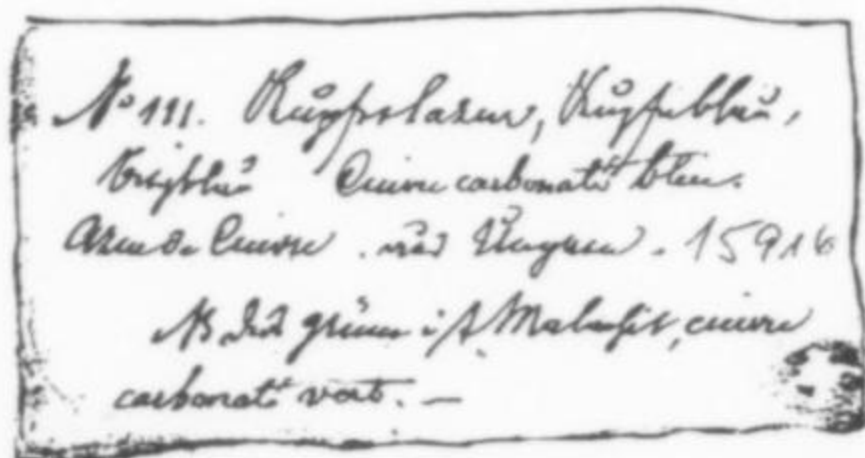 No 111. Kupferlasur, Kupferblau,
Bergblau Cuivre carbonaté bleu.
Azur de Cuivre. aus Ungarn. 15916
NB das grüne ist Malachit, cuivre
carbonaté vert. —